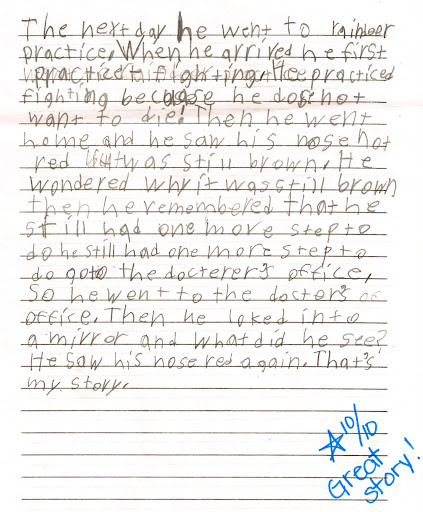 The next day he went to rainbeer
practice. When he arrived he first
practiced fighting. He practiced
fighting because he dos not
want to die! Then he went
home and he saw his nose not
red but was still brown. He
wondered why it was still brown
then he remembered that he
still had one more step to
do he still had one more step to
do goto the docterer's office,
So he went to the doctor's of
office. Then he loked into
a mirror and what did he see?
He saw his nose red again. That's
my story.
☆10/10
Great
story!